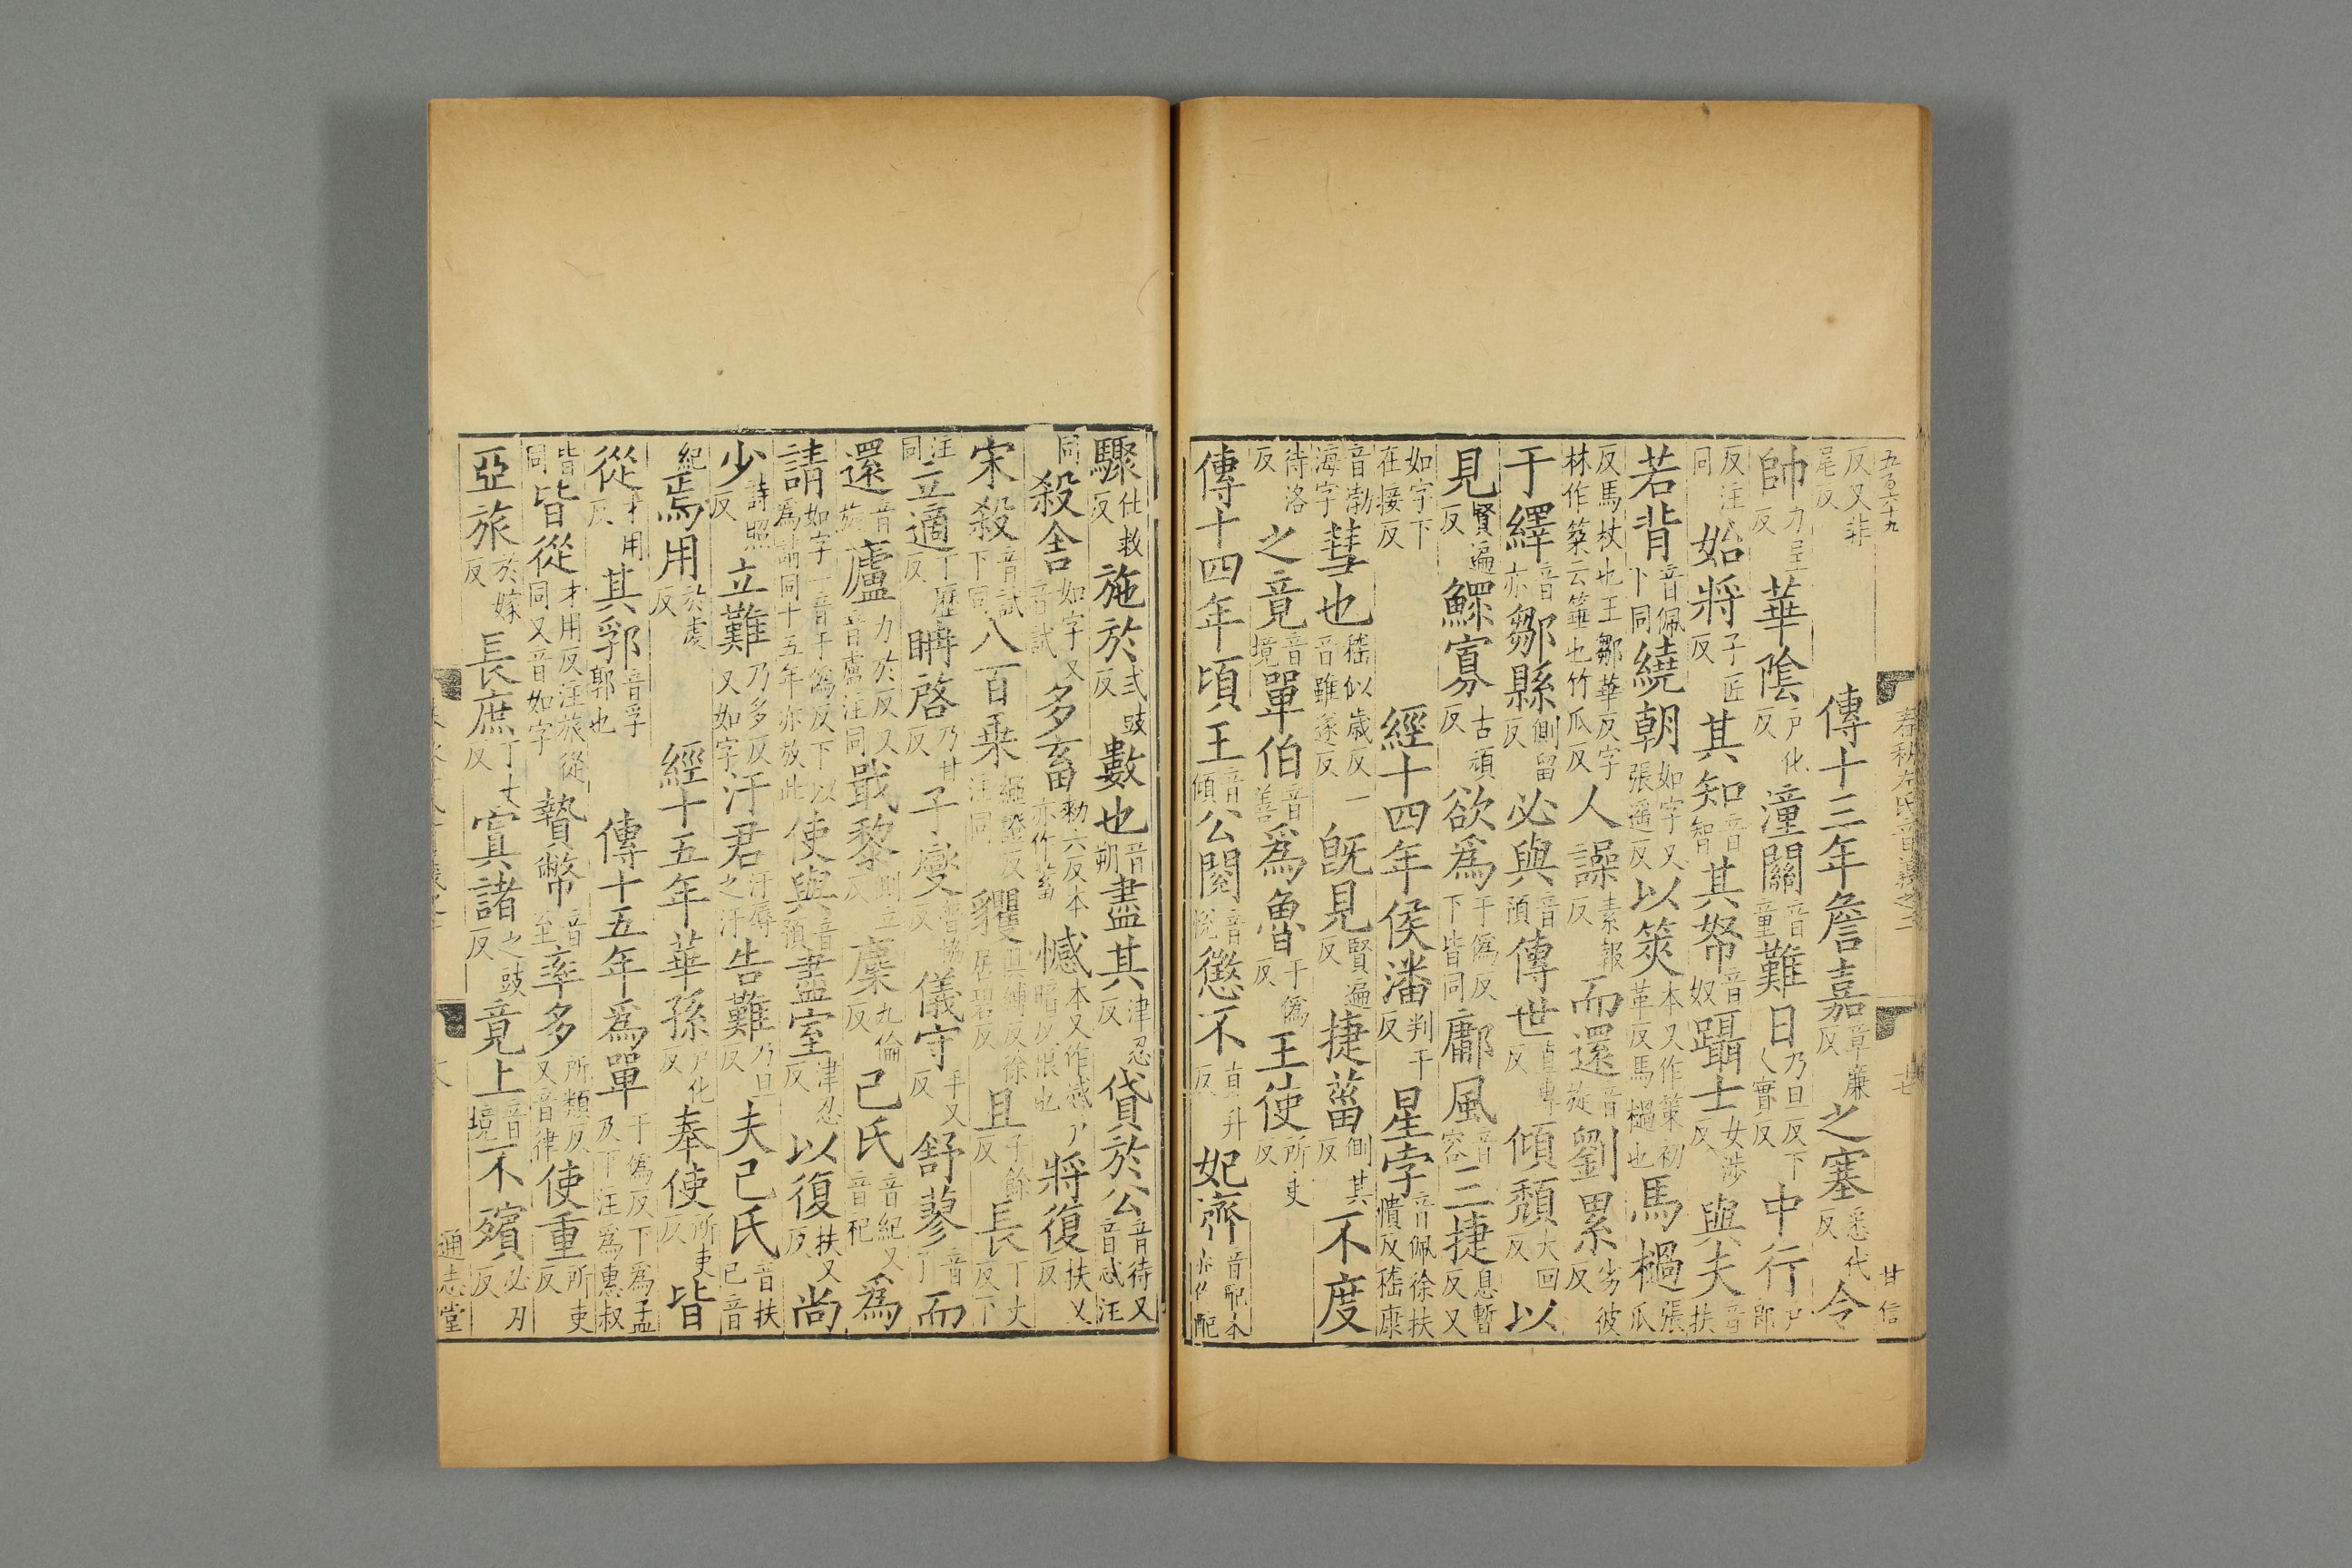 五百六十九
春秋左氏音義之二
廿七
甘信
反又非尾反 傳十三年詹嘉章廉反之塞悉代反令
帥力呈反華陰戸化反潼關音童難日乃旦反下人實反中行戸郎
反注同始將子匠反其知音智其帑音奴躡士女涉反與夫音扶
若背音佩下同繞朝如字又張遥反以筴本又作策初革反馬檛也馬檛張瓜
反馬杖也王鄒華反字林作築云箠也竹瓜反人譟素報反而還音旋劉累劣彼反
于繹音亦鄒縣側留反必與音預傳世直專反傾頽大回反以
見賢遍反鰥寡古頑反欲爲于僞反下皆同鄘風音容三捷息暫反又
如字下在接反 經十四年侯潘判干反星孛音佩徐扶憒反嵇康
音渤海字彗也嵇似歲反一音雖遂反旣見賢遍反捷菑側其反不度
待洛反之竟音境單伯音善爲魯于僞反王使所吏反
傳十四年頃王音傾公閱音悅懲不直升反妃齊音配本亦作配
驟仕救反施於式豉反數也音朔盡其津忍反貸於公音待又音忒注
同殺舍如字又音試多畜勑六反本亦作蓄憾本又作感戸暗反恨也將復扶又反
宋殺音試下同八百乗繩證反注同貜俱縛反徐居碧反且子餘反長丁丈反下
注同立適丁歷反聃啓乃甘反子燮音協反儀守手又反舒蓼音了而
還音旋廬力於反又音盧注同戢黎側立反麇九倫反己氏音紀又音祀爲
請如字一音于僞反下以爲請同十五年亦放此使與音預盡室津忍反以復扶又反尚
少詩照反立難乃多反又如字汙君汙辱之汙告難乃旦反夫己氏音扶己音
紀焉用於虔反 經十五年華孫戸化反奉使所吏反皆
從才用反其郛音孚郭也 傳十五年爲單于僞反下爲孟及下注爲惠叔
皆同皆從才用反注旅從同又音如字贄幣音至率多所類反又音律使重所吏反
亞旅於嫁反長庶丁丈反寘諸之豉反竟上音境不殯必刃反
通志堂